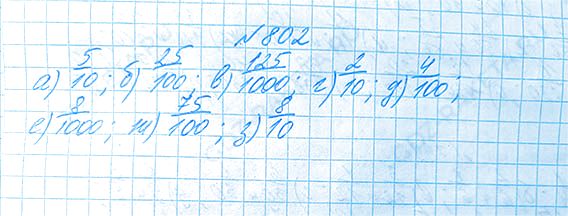 №802
а) 5/10; б) 25/100; в) 125/1000; г) 2/10; д) 4/100;
е) 8/1000; ж) 75/100; з) 8/10